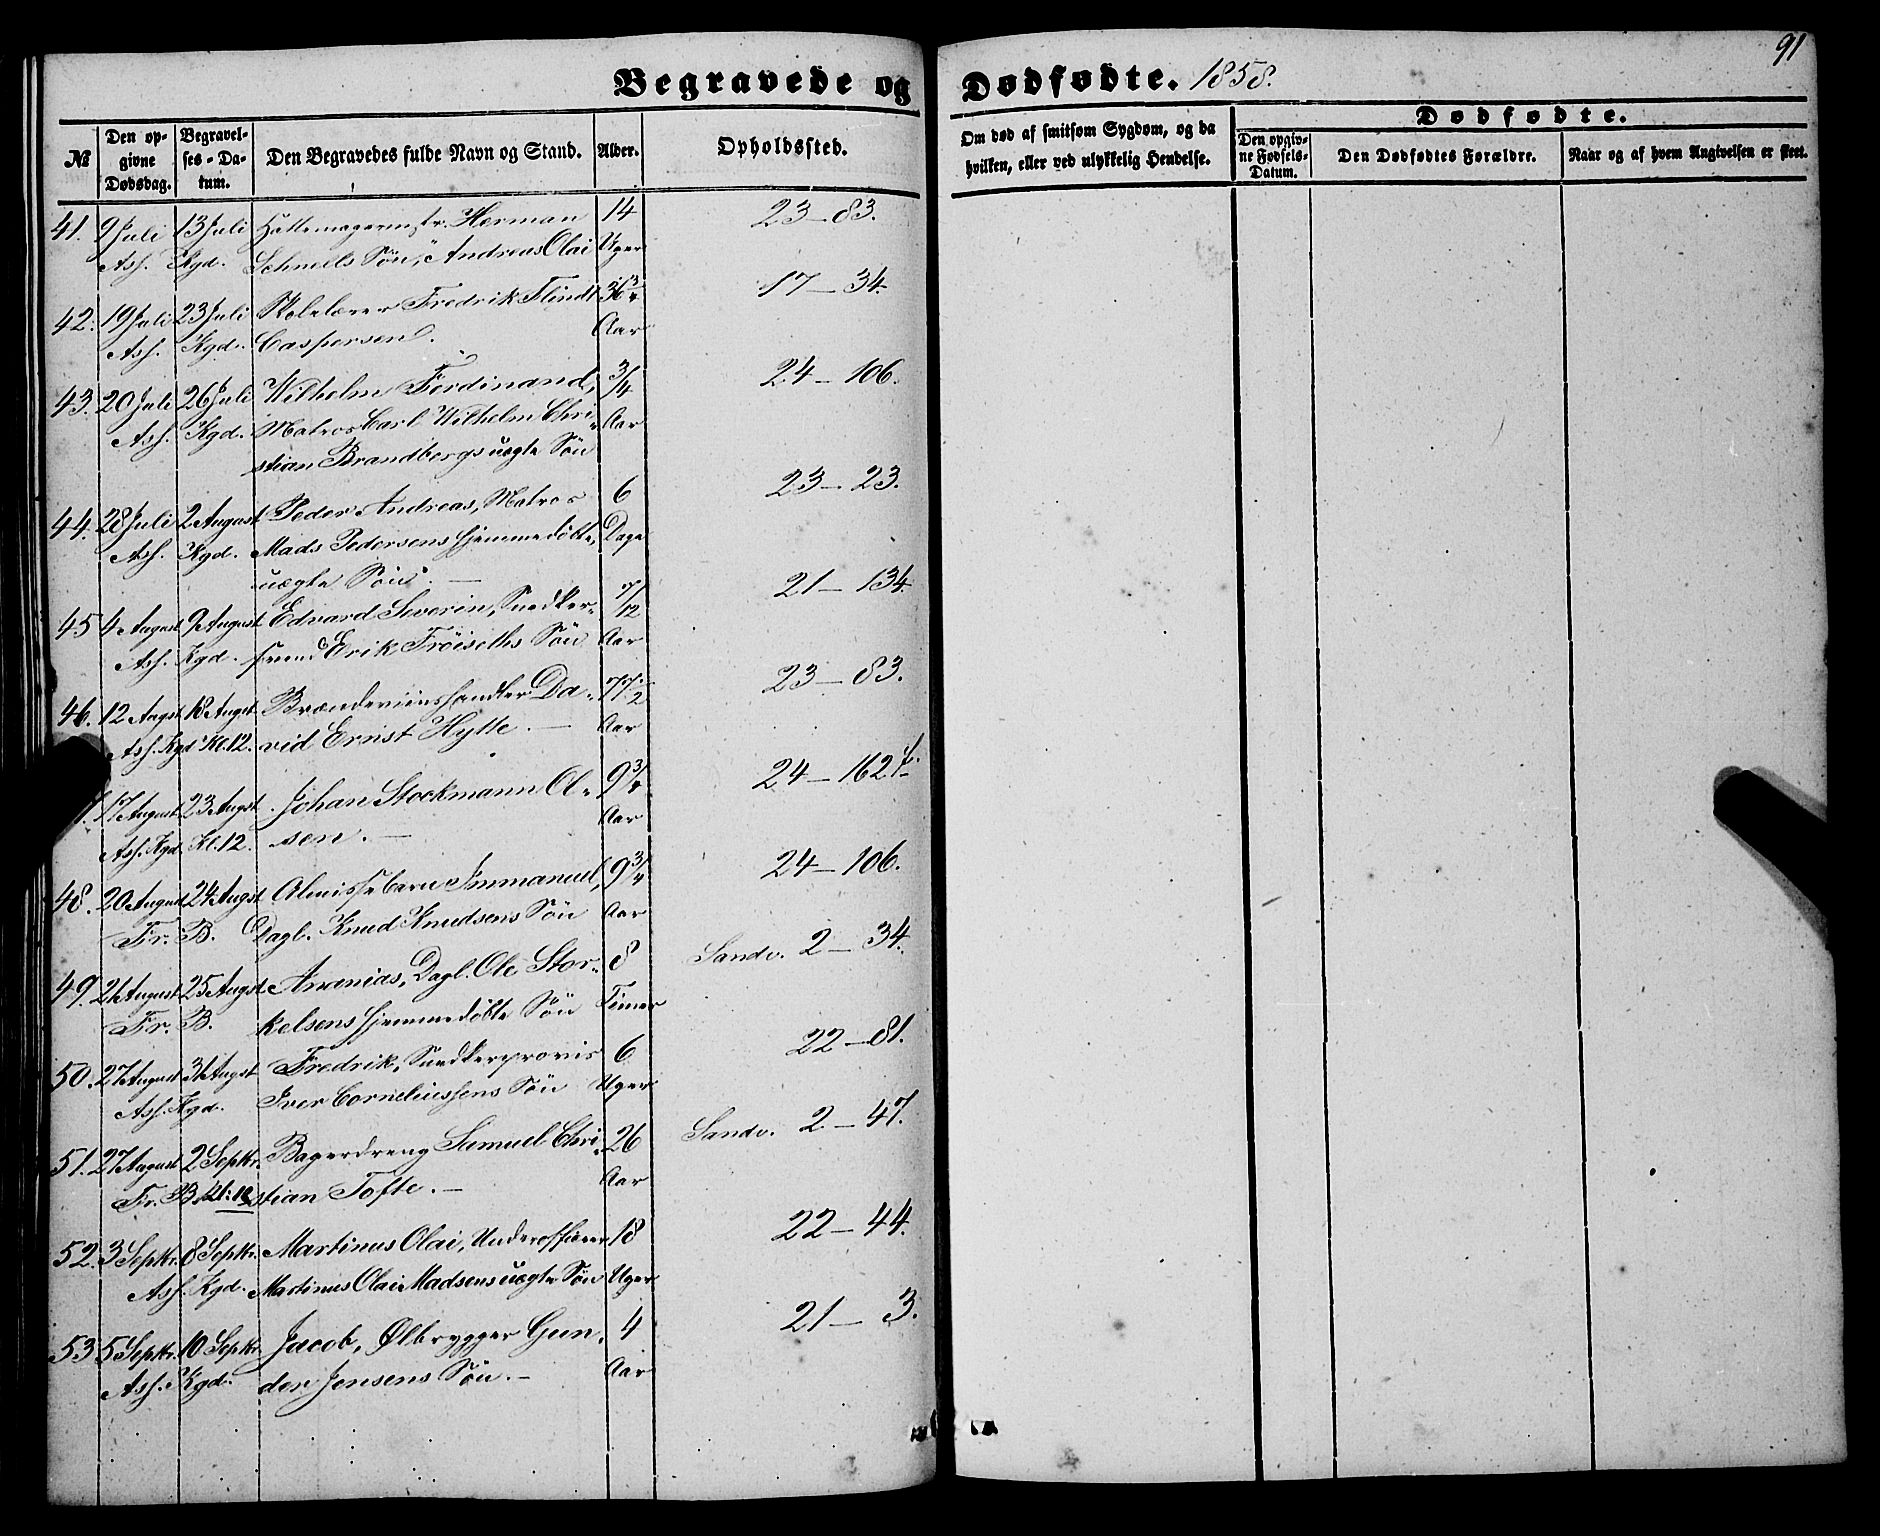 91
Begravede og Dødfødte. 1858.
№ Den opgivne Dødsdag. Begravelses-Datum. Den Begravedes fulde Navn og Stand. Alder. Opholdssted. Om død af smitsom Sygdom, og da hvilken, eller ved ulykkelig Hendelse. Dødfødte. Den opgivne Fødsels-Datum. Den Dødfødtes Forældre. Naar og af hvem Angivelsen er skeet.
41. 9 Juli 13 Juli Hattemagermstr. Herman 14 23–83.
Ass. Kgd. Schnells Søn, Andreas Olai Uger
42. 19 Juli 23 Juli Skolelærer Fredrik Flindt 36 3/4 17–34.
Ass. Kgd. Caspersen. Aar
43. 20 Juli 26 Juli Wilhelm Ferdinand, 3/4 24–106.
Ass. Kgd. Matros Carl Wilhelm Chri- Aar
stian Brandbergs uægte Søn
44. 28 Juli 2 August Peder Andreas, Matros 6 23–23.
Ass. Kgd. Mads Pedersens hjemmedøbte, Dage
uægte Søn. –
45 4 August 9 August Edvard Severin, Snedker- 7/12 21–134.
Ass. Kgd. svend Erik Frøiseths Søn Aar
46. 12 Augst 18 Augst Brændeviinshandler Da- 77 1/2 23–83.
Ass. Kgd Kl. 12. vid Ernst Hytte. – Aar
17 August 23 Augst Johan Stockmann Ol- 9 3/4 24–162
Ass. Kgd. Kl. 12. sen. – Aar
48. 20 August 24 Augst Almissebarn Immanuel, 9 3/4 24–106.
Fr. B. Dagl. Knud Knudsens Søn Aar
49. 21 August 25 Augst Ananias, Dagl. Ole Stor- 8 Sandv. 2–34.
Fr. B. kelsens hjemmedøbte Søn Timer
50. 27 August 31 Augst Fredrik, Snedkerprovis 6 22–81.
Ass. Kgd. Iver Corneliussens Søn Uger
51. 27 August 2 Septbr. Bagerdreng Samuel Chri- 26 Sandv. 2–47.
Fr. B. stian Tofte. – Aar
52. 3 Septbr. 8 Septbr. Martinus Olai, Underofficeer 18 22–44.
Ass. Kgd. Martinus Olai Madsens uægte Søn Uger
53 5 Septbr. 10 Septbr. Jacob, Ølbrygger Gun- 4 21–3.
Ass. Kgd. der Jensens Søn. – Aar